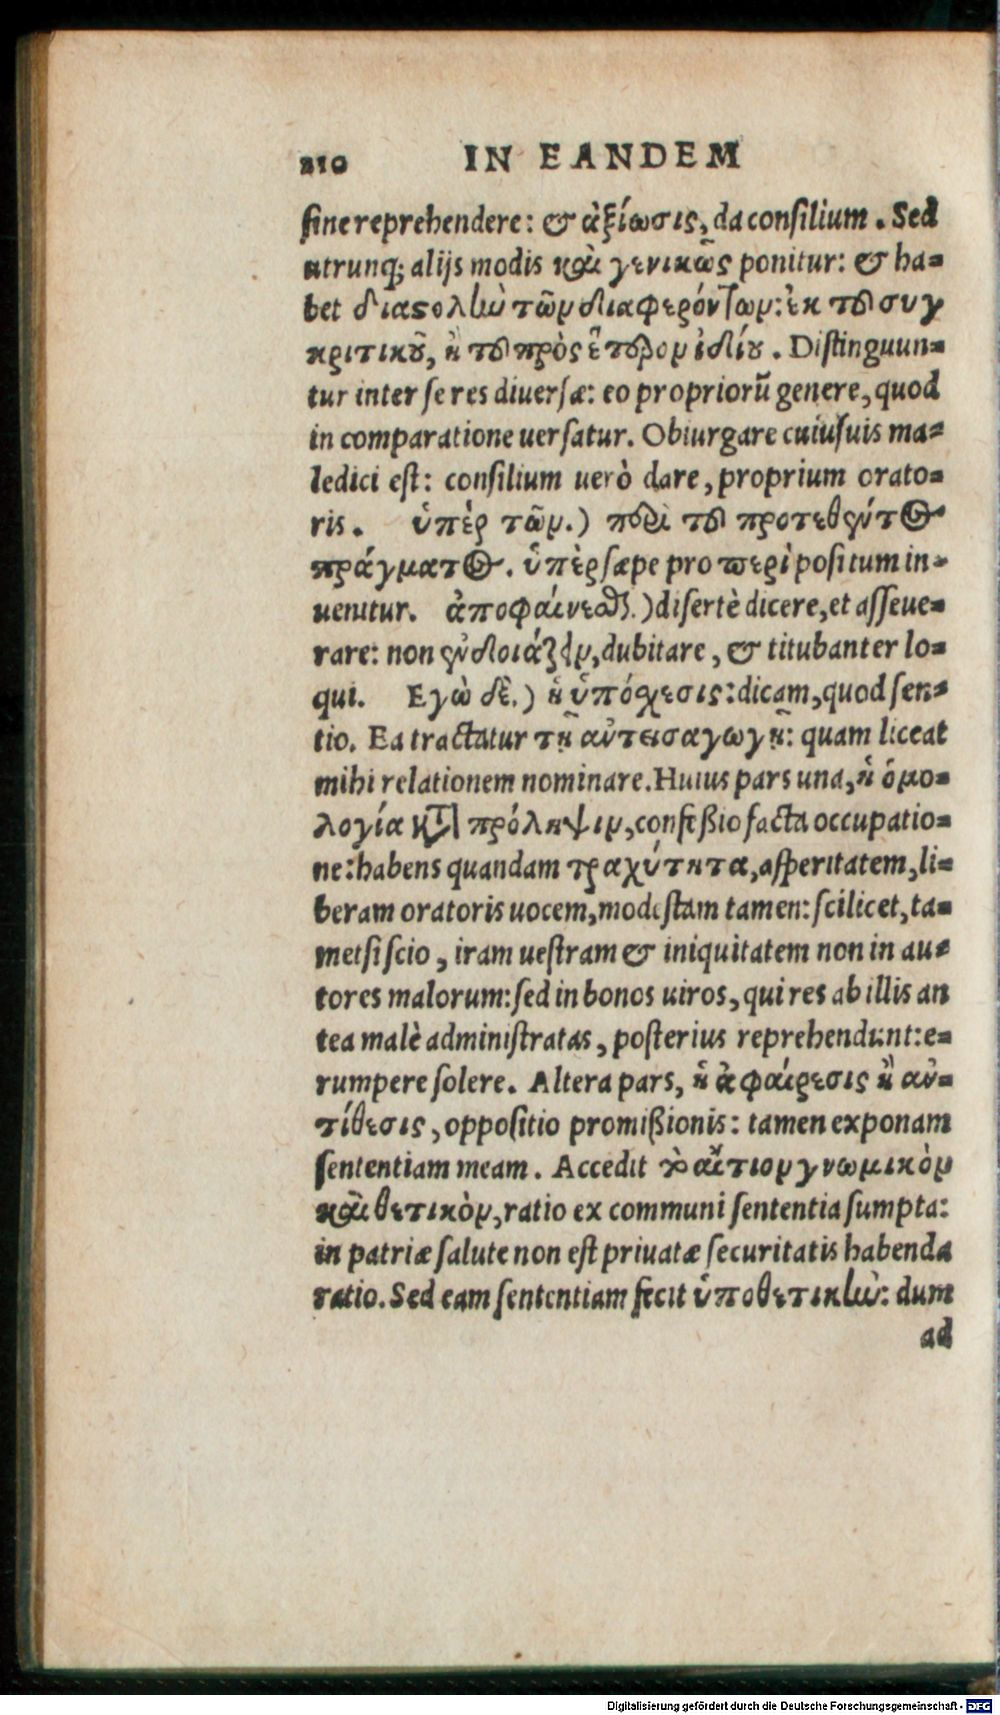 210 IN EANDEM
sine reprehendere: & ἀξίωσις, da consilium. Sed
utrunq; alijs modis καὶ γενικῶς ponitur: & ha-
bet διαστολὴν τῶν διαφερόντων: ἐκ τοῦ συγ
κριτικοῦ, ἢ τοῦ πρὸς ἕτερον ἰδίου. Distinguun-
tur inter se res diuersæ: eo propriorū genere, quod
in comparatione uersatur. Obiurgare cuiusuis ma-
ledici est: consilium uerò dare, proprium orato-
ris. ὑπὲρ τῶν.) περὶ τοῦ προτεθέντος
πράγματος. ὑπὲρ sæpe pro περὶ positum in-
uenitur. ἀποφαίνεσθαι.) disertè dicere, et asseue-
rare: non ἐνδοιάζειν, dubitare, & titubanter lo-
qui. Εγὼ δὲ.) ἡ ὑπόσχεσις: dicam, quod sen-
tio. Ea tractatur τῇ ἀντεισαγωγῇ: quam liceat
mihi relationem nominare. Huius pars una, ἡ ὁμο-
λογία κατὰ πρόληψιν, confeßio facta occupatio-
ne: habens quandam τραχύτητα, asperitatem, li-
beram oratoris uocem, modestam tamen: scilicet, ta-
metsi scio, iram uestram & iniquitatem non in au-
tores malorum: sed in bonos uiros, qui res ab illis an
tea malè administratas, posterius reprehendunt: e-
rumpere solere. Altera pars, ἡ ἀφαίρεσις ἢ ἀν-
τίθεσις, oppositio promißionis: tamen exponam
sententiam meam. Accedit τὸ αἴτιον γνωμικὸν
καὶ θετικὸν, ratio ex communi sententia sumpta:
in patriæ salute non est priuatæ securitatis habenda
ratio. Sed eam sententiam fecit ὑποθετικὴν: dum
ad
Digitalisierung gefördert durch die Deutsche Forschungsgemeinschaft - DFG